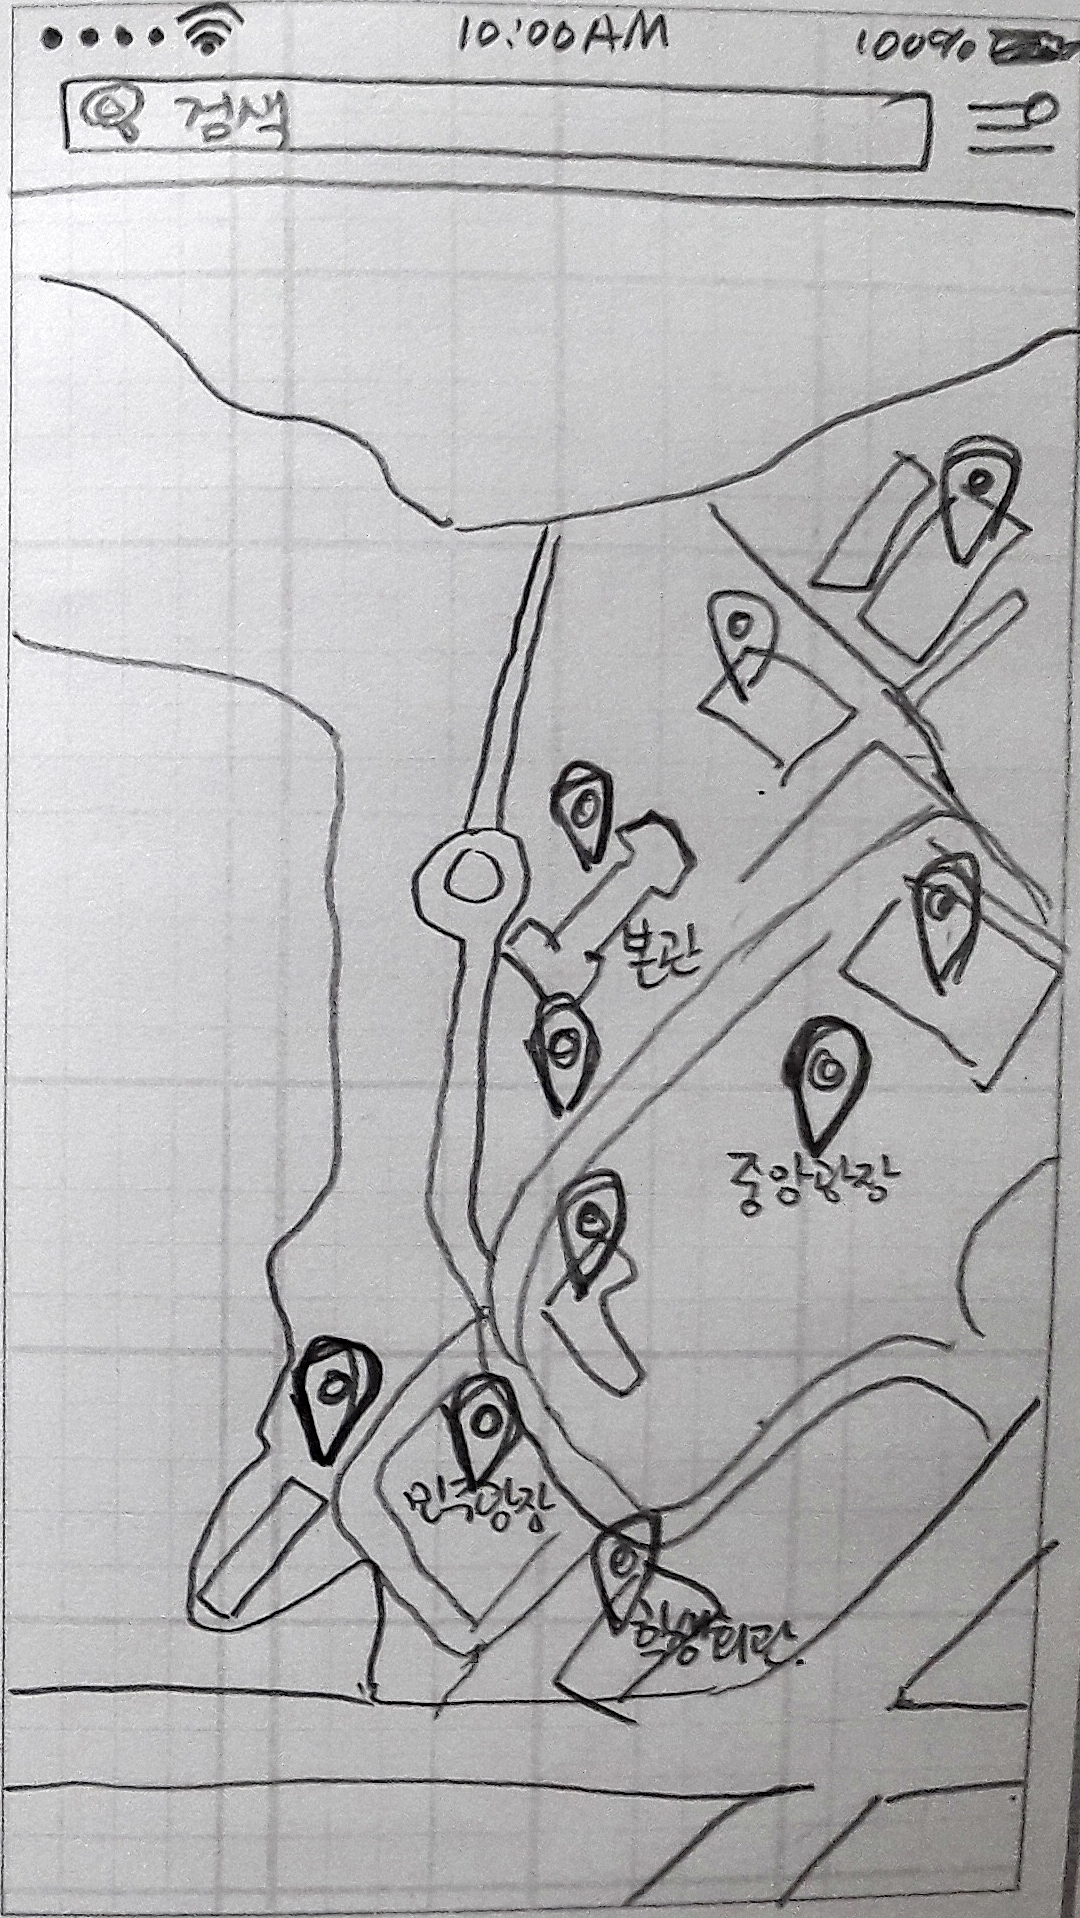 10:00AM 100%
검색
본관
중앙광장
민주광장
학생회관.